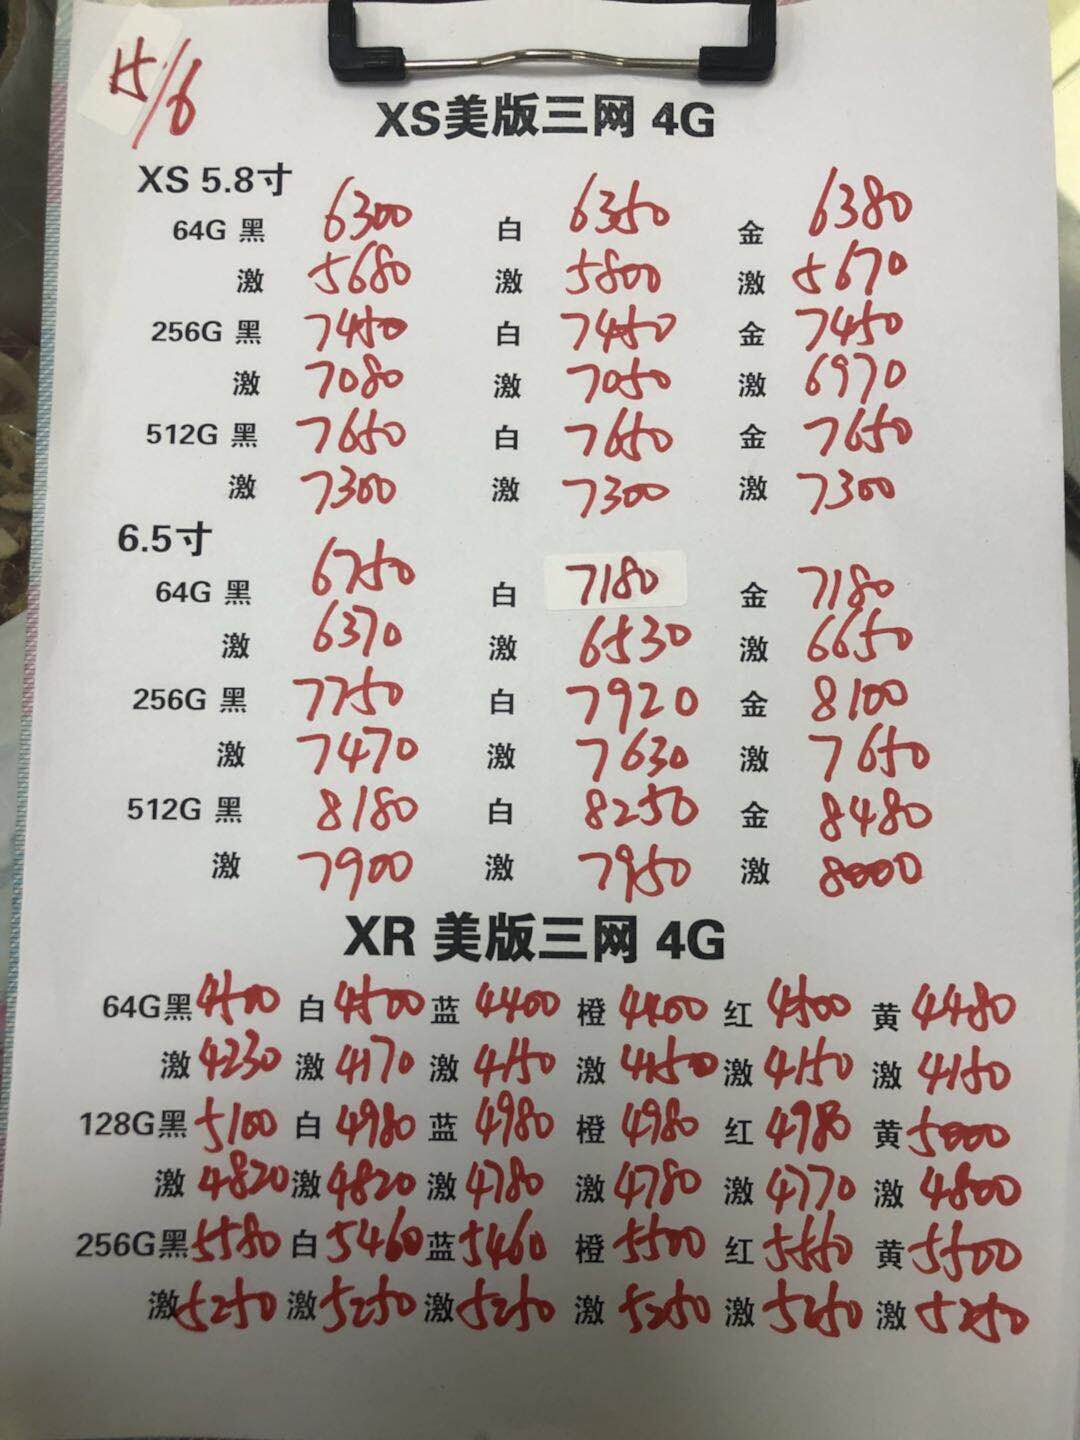 15/6
XS美版三网 4G
XS 5.8寸
64G 黑 6300 白 6350 金 6380
激 5680 激 5800 激 5670
256G 黑 7450 白 7450 金 7450
激 7080 激 7050 激 6970
512G 黑 7650 白 7650 金 7650
激 7300 激 7300 激 7300
6.5寸
64G 黑 6750 白 7180 金 7180
激 6370 激 6530 激 6650
256G 黑 7750 白 7920 金 8100
激 7470 激 7630 激 7650
512G 黑 8180 白 8250 金 8480
激 7900 激 7950 激 8000
XR 美版三网 4G
64G黑 4500 白 4500 蓝 4400 橙 4400 红 4500 黄 4480
激 4230 激 4170 激 4150 激 4150 激 4150 激 4150
128G黑 5100 白 4980 蓝 4980 橙 4980 红 4980 黄 5000
激 4820 激 4820 激 4780 激 4780 激 4770 激 4800
256G黑 5580 白 5460 蓝 5460 橙 5500 红 5550 黄 5500
激 5250 激 5250 激 5250 激 5250 激 5250 激 5250